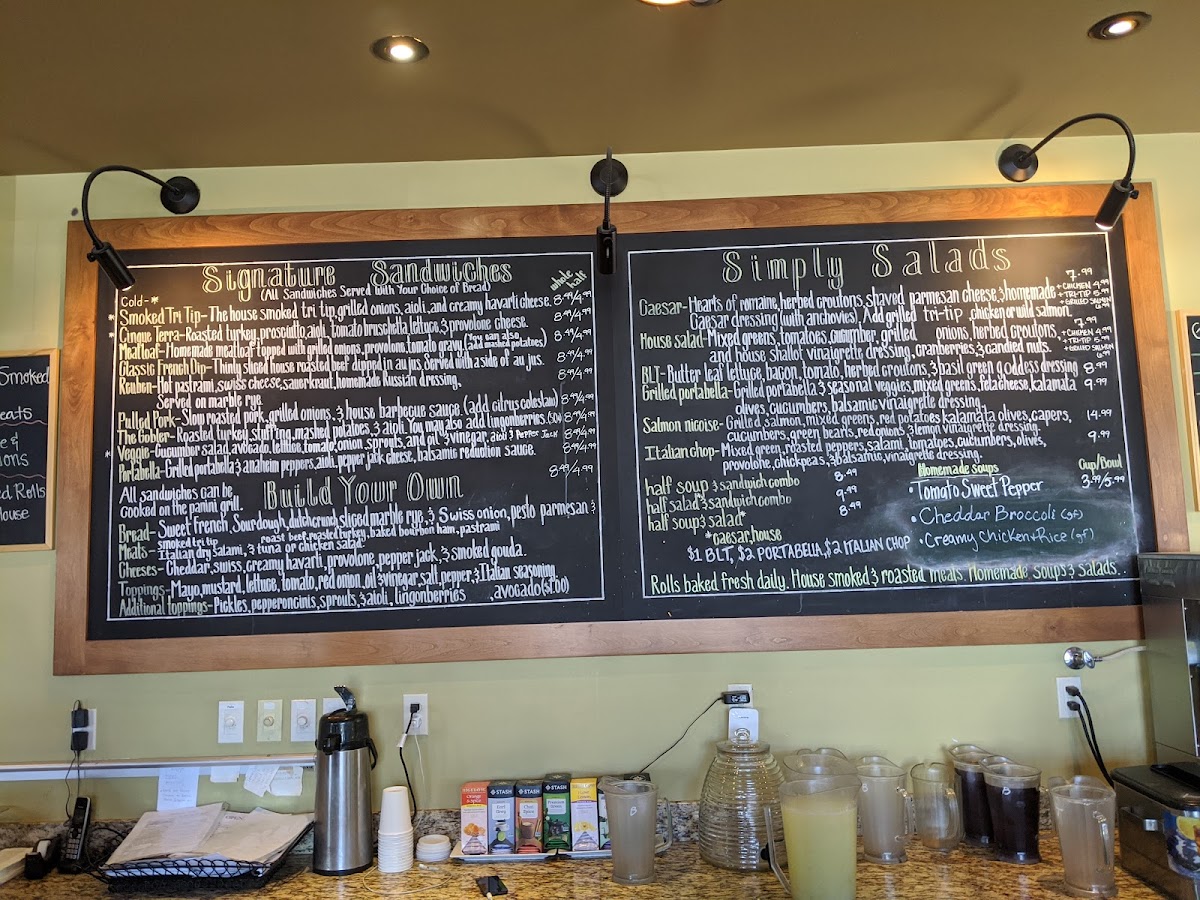 Signature Sandwiches
(All Sandwiches Served with Your Choice of Bread)
whole
half
Cold-*
*Smoked Tri Tip-The house smoked tri tip, grilled onions, aioli, and creamy havarti cheese. 8.49/4.99
*Cinque Terra-Roasted turkey, prosciutto, aioli, tomato bruschetta, lettuce, & provolone cheese. 8.49/4.99
Meatloaf-Homemade meatloaf topped with grilled onions, provolone, tomato gravy. (You can also add mashed potatoes) 8.49/4.99
Classic French Dip-Thinly sliced house roasted beef dipped in au jus. Served with a side of au jus. 8.49/4.99
Reuben-Hot pastrami, swiss cheese, sauerkraut, homemade Russian dressing. 8.49/4.99
Served on marble rye.
Pulled Pork-Slow roasted pork, grilled onions, & house barbecue sauce. (add citrus coleslaw) 8.49/4.99
The Gobler-Roasted turkey, stuffing, mashed potatoes, & aioli. You may also add lingonberries (.50) 8.49/4.99
*Veggie-Cucumber salad, avocado, lettuce, tomato, onion, sprouts, and oil & vinegar, aioli & Pepper Jack 8.49/4.99
Portabella-Grilled portabella & anaheim peppers, aioli, pepper jack cheese, balsamic reduction sauce. 8.49/4.99
8.49/4.99
All sandwiches can be
cooked on the panini grill.
Build Your Own
Bread-Sweet French, Sourdough, dutch crunch, sliced marble rye, & Swiss onion, pesto parmesan &
Meats-smoked tri tip, roast beef, roasted turkey, baked bourbon ham, pastrami
Italian dry salami, & tuna or chicken salad.
Cheeses-Cheddar, swiss, creamy havarti, provolone, pepper jack, & smoked gouda.
Toppings-Mayo, mustard, lettuce, tomato, red onion, oil & vinegar, salt, pepper, & Italian seasoning
Additional toppings-Pickles, pepperoncinis, sprouts, & aioli, lingonberries avocado($1.00)
Simply Salads
7.99
Caesar-Hearts of romaine, herbed croutons, shaved parmesan cheese, & homemade
Caesar dressing (with anchovies). Add grilled tri-tip, chicken or wild salmon.
+CHICKEN 4.99
+TRI-TIP 5.99
+GRILLED SALMON 6.99
7.99
House salad-Mixed greens, tomatoes, cucumber, grilled onions, herbed croutons,
and house shallot vinaigrette dressing, cranberries, & candied nuts.
+CHICKEN 4.99
+TRI-TIP 5.99
+GRILLED SALMON 6.99
BLT-Butter leaf lettuce, bacon, tomato, herbed croutons, & basil green goddess dressing 8.99
Grilled portabella-Grilled portabella & seasonal veggies, mixed greens, feta cheese, kalamata 9.99
olives, cucumbers, balsamic vinaigrette dressing.
Salmon nicoise-Grilled salmon, mixed greens, red potatoes, kalamata olives, capers, 14.99
cucumbers, green beans, red onions & lemon vinaigrette dressing.
Italian chop-Mixed green, roasted peppers, salami, tomatoes, cucumbers, olives, 9.99
provolone, chickpeas, & balsamic vinaigrette dressing.
half soup & sandwich combo 8.49
half salad & sandwich combo 9.99
half soup & salad* 8.49
*caesar, house
$1 BLT, $2 PORTABELLA, $2 ITALIAN CHOP
Homemade soups Cup/Bowl
•Tomato Sweet Pepper 3.99/5.99
•Cheddar Broccoli (gf)
•Creamy Chicken & Rice (gf)
Rolls baked fresh daily. House smoked & roasted meats. Homemade soups & salads.
Smoked
eats
ions
ed Rolls
House
STASH
STASH
STASH